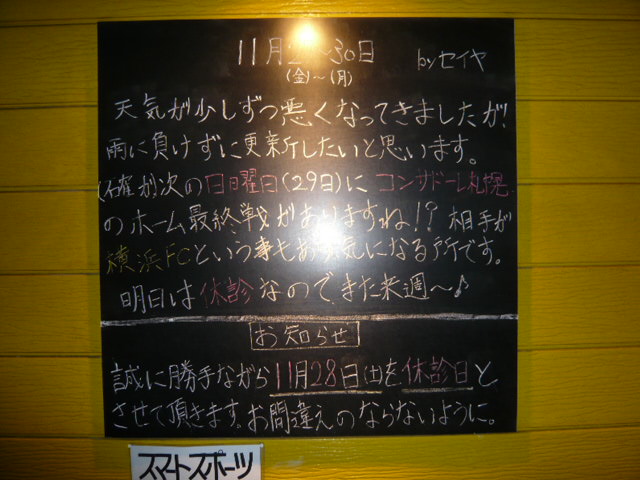 11月2 ～30日 byセイヤ
(金)～(月)
天気が少しずつ悪くなってきましたが!
雨に負けずに更新したいと思います。
(確か)次の日曜日(29日)にコンサドーレ札幌
のホーム最終戦がありますね!? 相手が
横浜FCという事も 気になる所です。
明日は休診なのでまた来週～♪
お知らせ
誠に勝手ながら11月28日(土)を休診日と
させて頂きます。お間違えのならないように。
スマートスポーツ